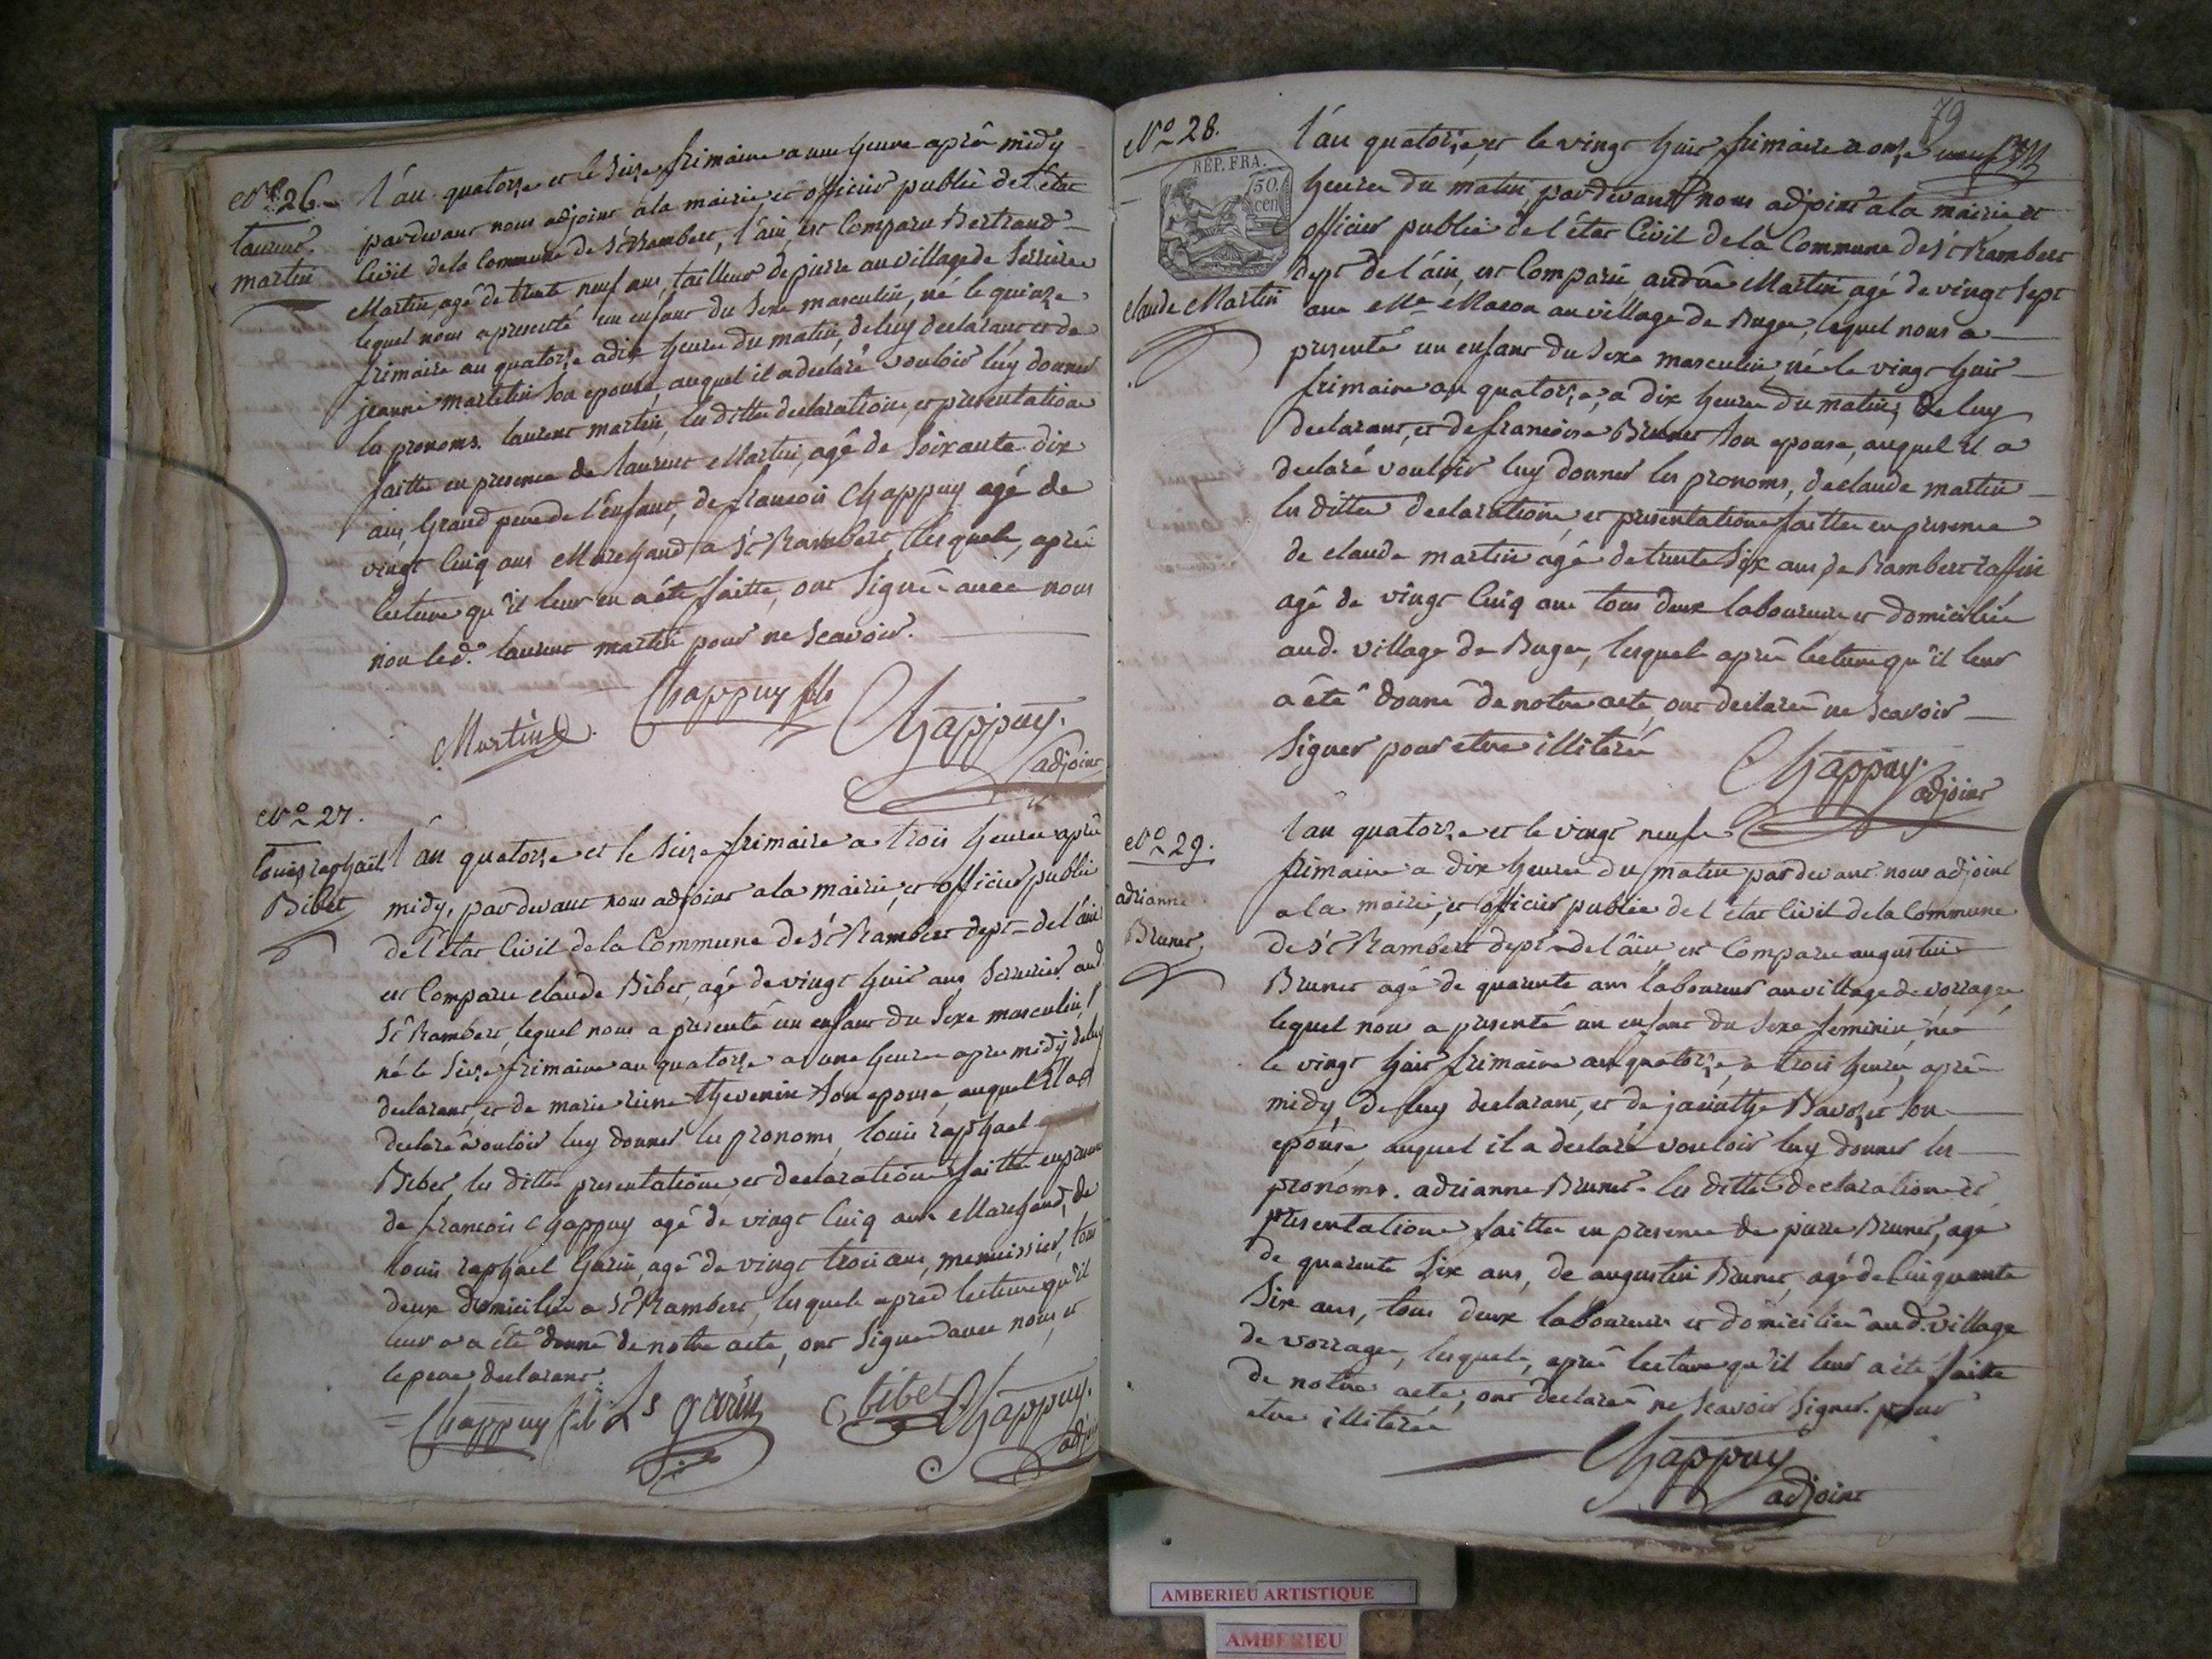 N.° 26.
laurent
martin
l'an quatorze et le seize frimaire a une heure après midy
pardevant nous adjoint a la mairie et officier public de l'état
Civil de la Commune de St Rambert, l'ain, est Comparu Bertrand
Martin, agé de trente neuf ans, tailleur de pierre au village de Serrieres
lequel nous a presenté un enfant du sexe masculin, né le quinze
frimaire an quatorze a dix heures du matin, de luy declarant et de
jeanne martelin son epouse, auquel il a declaré vouloir luy donner
les pronoms. laurent martin, les dittes declaration, et presentation
faitte en presence de laurent Martin, agé de soixante dix
ans, Grand pere de l'enfant, de francois Chappuy agé de
vingt Cinq ans Marchand a St Rambert, lesquels, après
lecture qu'il leur en a été faitte, ont signé avec nous
non led. laurent martin pour ne scavoir.
Martin
Chappuy fils
Chappuy.
adjoint
N° 27.
Louis raphaël
Bibet
l'an quatorze et le seize frimaire a trois heures après
midy, pardevant nous adjoint a la mairie, et officier public
de l'état Civil de la Commune de St Rambert dept de l'ain
est Comparu claude Bibet, agé de vingt huit ans, Serrurier aud.
St Rambert, lequel nous a presenté un enfant du sexe masculin,
né le seize frimaire an quatorze a une heure apres midy de luy
declarant, et de marie reine thevenin son epouse, auquel il a
declaré vouloir luy donner les pronoms, louis raphael
Bibet, les dittes presentation, et declaration faitte en presence
de francois Chappuy agé de vingt Cinq ans Marchand, de
louis raphael Garin, agé de vingt trois ans, menuissier, tous
deux domiciliés a St Rambert, lesquels après lecture qu'il
leur a été donné de notre acte, ont signé avec nous, et
le pere declarant.
Chappuy fils Ls garin C bibet Chappuy.
adjoint
79
N° 28.
REP. FRA.
50.
cen
claude Martin
l'an quatorze, et le vingt huit frimaire a onze
heures du matin, pardevant nous adjoint a la mairie et
officier public de l'état Civil de la Commune de St Rambert
dept de l'ain, est Comparu andré Martin agé de vingt sept
ans Me Macon au village de Buges, lequel nous a
presenté un enfant du sexe masculin né le vingt huit
frimaire an quatorze, a dix heures du matin, de luy
declarant, et de francoise Brunet son epouse, auquel il a
declaré vouloir luy donner les pronoms, de claude martin
les dittes declaration, et presentation faitte en presence
de claude martin agé de trente six ans, de Rambert raffin
agé de vingt Cinq ans tous deux laboureurs et domiciliés
aud. village de Buges, lesquels après lecture qu'il leur
a été donné de notre acte, ont declaré ne scavoir
signer pour etre illiteré
Chappuy.
adjoint
N° 29.
adrianne
Brunet,
l'an quatorze et le vingt neufe
frimaire a dix heures du matin pardevant nous adjoint
a la mairie, et officier public de l'état Civil de la Commune
de St Rambert dept de l'ain, est Comparu augustin
Brunet agé de quarante ans laboureur au village de vorrages
lequel nous a presenté un enfant du sexe feminin, né
le vingt huit frimaire an quatorze, a trois heures, après
midy, de luy declarant, et de jacinthe son
epouse, auquel il a declaré vouloir luy donner les
pronoms. adrianne Brunet. les dittes declaration et
presentation faitte en presence de pierre Brunet, agé
de quarante six ans, de augustin Brunet, agé de Cinquante
Six ans, tous deux laboureurs et domiciliés aud. village
de vorrages, lesquels, après lecture qu'il leur a été faitte
de notre acte, ont declaré ne scavoir signer. pour
etre illiteré
Chappuy
adjoint
AMBERIEU ARTISTIQUE
AMBERIEU